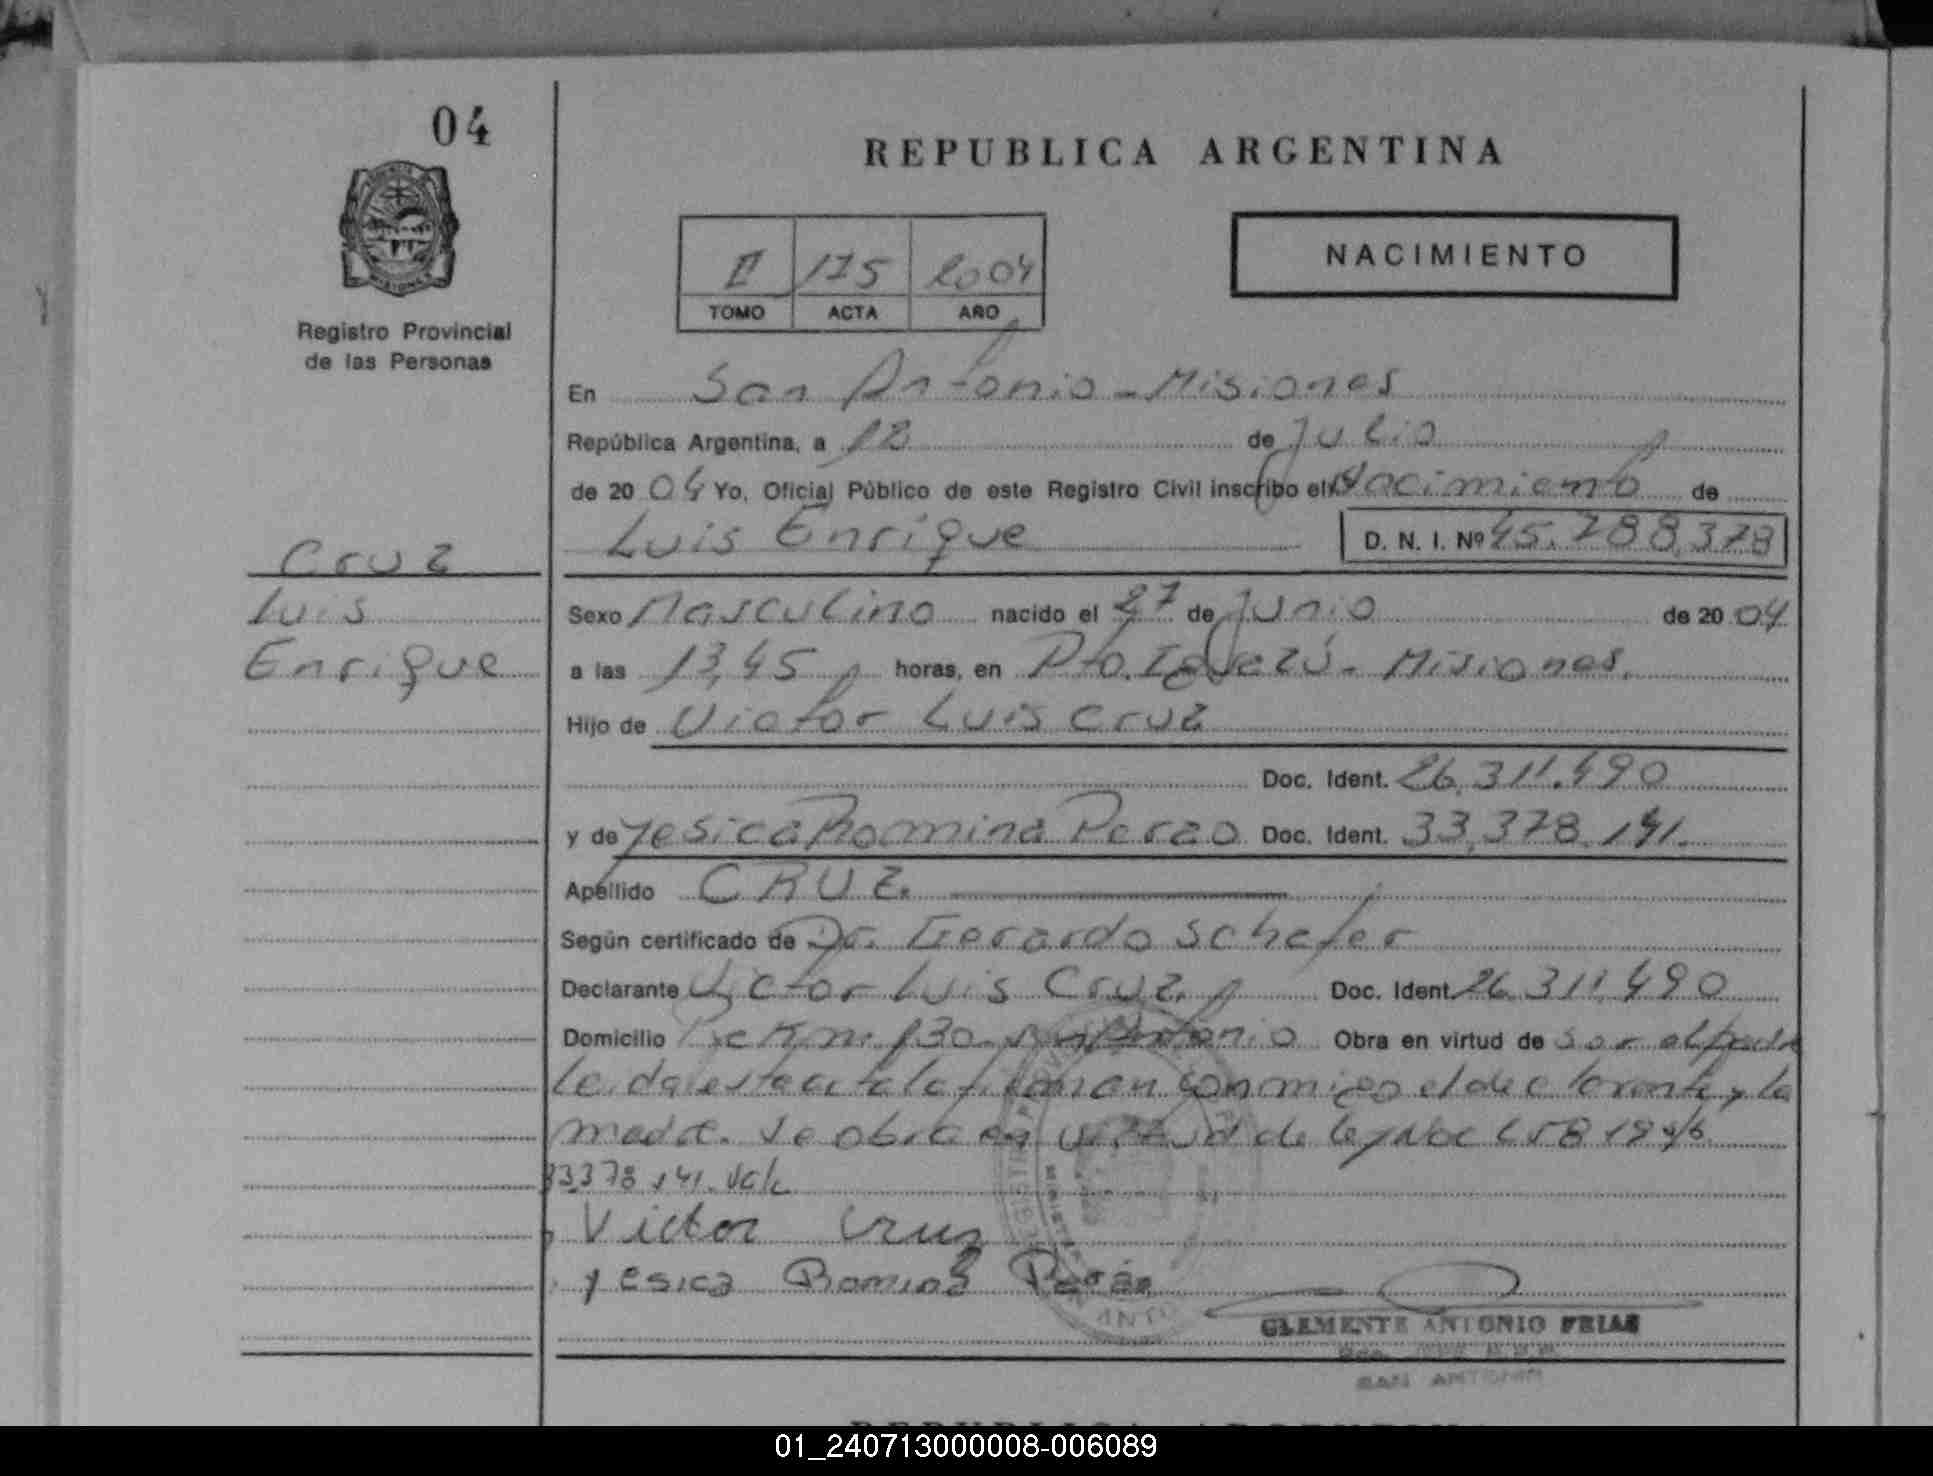 04
REPUBLICA ARGENTINA
Registro Provincial
de las Personas
II 175 2004
TOMO ACTA AÑO
NACIMIENTO
En San Antonio - Misiones
República Argentina, a 12 de Julio
de 2004 Yo, Oficial Público de este Registro Civil inscribo el Nacimiento de
Luis Enrique D. N. I. Nº 45.788.378
Cruz
Luis
Enrique
Sexo Masculino nacido el 27 de Junio de 2004
a las 13,45 horas, en Pto. Iguazú - Misiones.
Hijo de Victor Luis Cruz
Doc. Ident. 26.311.490
y de Yesica Romina Perao Doc. Ident. 33.378.141.
Apellido CRUZ.
Según certificado de Dr. Gerardo Schefer
Declarante Victor Luis Cruz. Doc. Ident. 26.311.490
Domicilio Km. 130. San Antonio Obra en virtud de ser el padre
leida esta acta la firman conmigo el declarante y la
madre. Se obra en virtud de
33.378.141. Vale
Victor Cruz
Yesica Romina
CLEMENTE ANTONIO FRIAS
SAN ANTONIO
REPUBLICA ARGENTINA
01_240713000008-006089